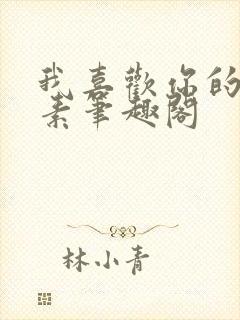 我喜歡你的
素筆趣閣
林小青